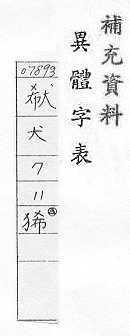 補充資料
異體字表
07893
犬
7
11
狶